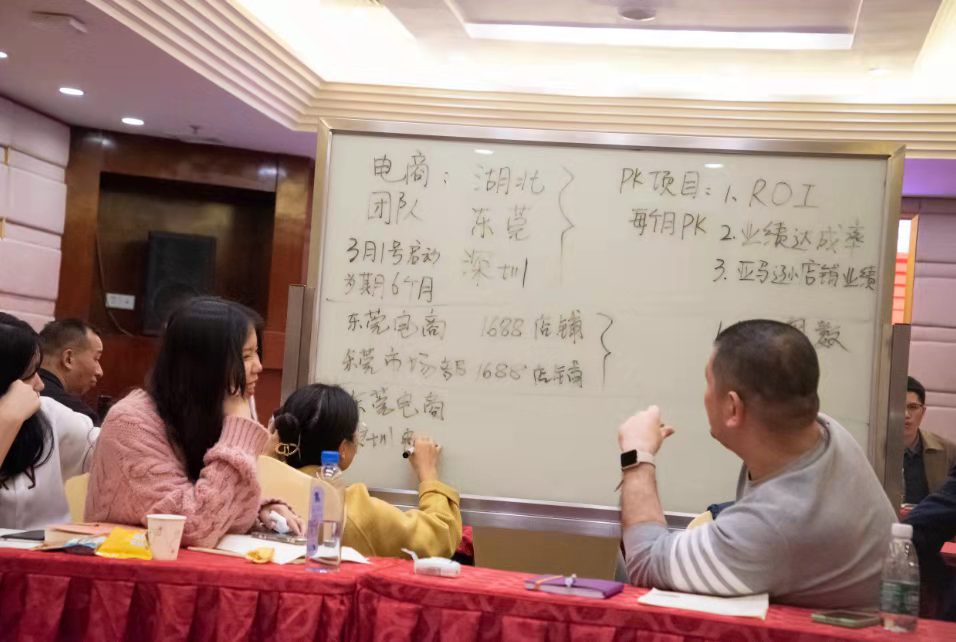 电商: 湖北
团队 东莞
3月1号启动 深圳
为期6个月
PK项目: 1. ROI
每个月PK 2. 业绩达成率
3. 亚马逊小店铺业绩
东莞电商 1688店铺
东莞市场部 1688店铺
东莞电商
深圳电
数